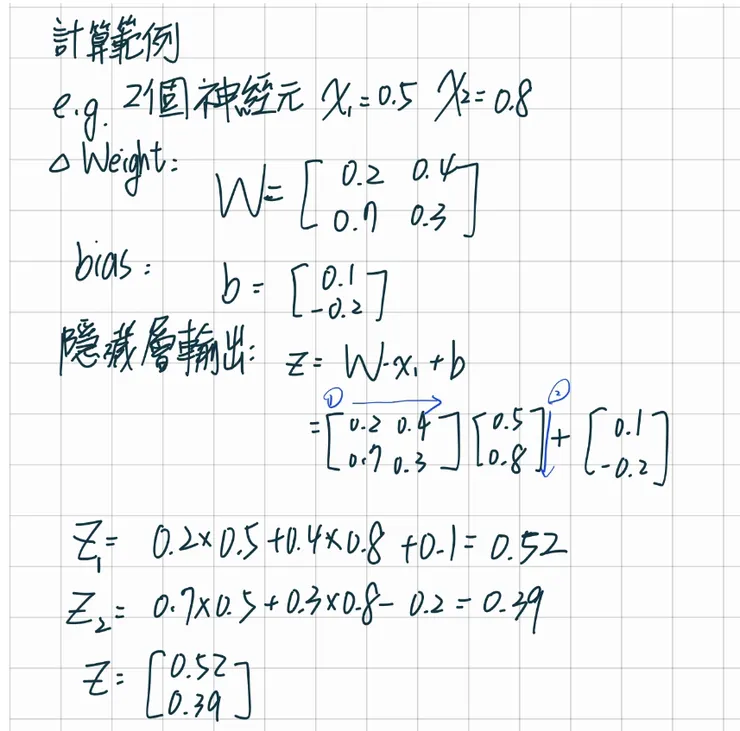 計算範例
e.g. 2個神經元 X₁=0.5 X₂=0.8
△ Weight:
W= [0.2 0.4
0.7 0.3]
bias:
b = [0.1
-0.2]
隱藏層輸出: z = W·x₁+b
① ②
= [0.2 0.4 [0.5 + [0.1
0.7 0.3] 0.8] -0.2]
Z₁= 0.2×0.5+0.4×0.8+0.1=0.52
Z₂= 0.7×0.5+0.3×0.8-0.2=0.39
Z= [0.52
0.39]